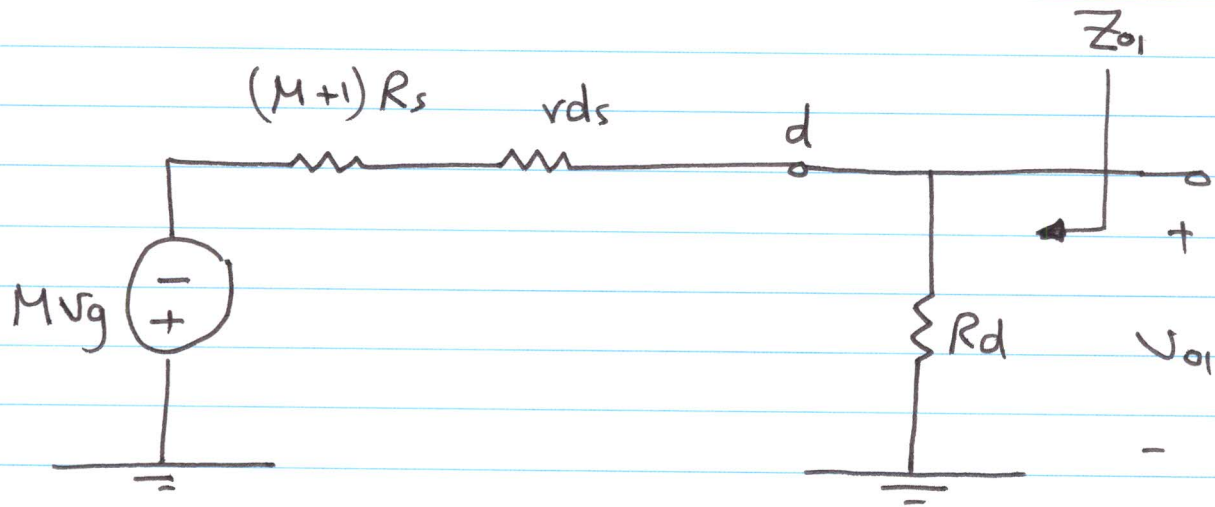 Zo1
(μ+1) Rs
rds
d
μ vg
−
+
Rd
+
vo1
−